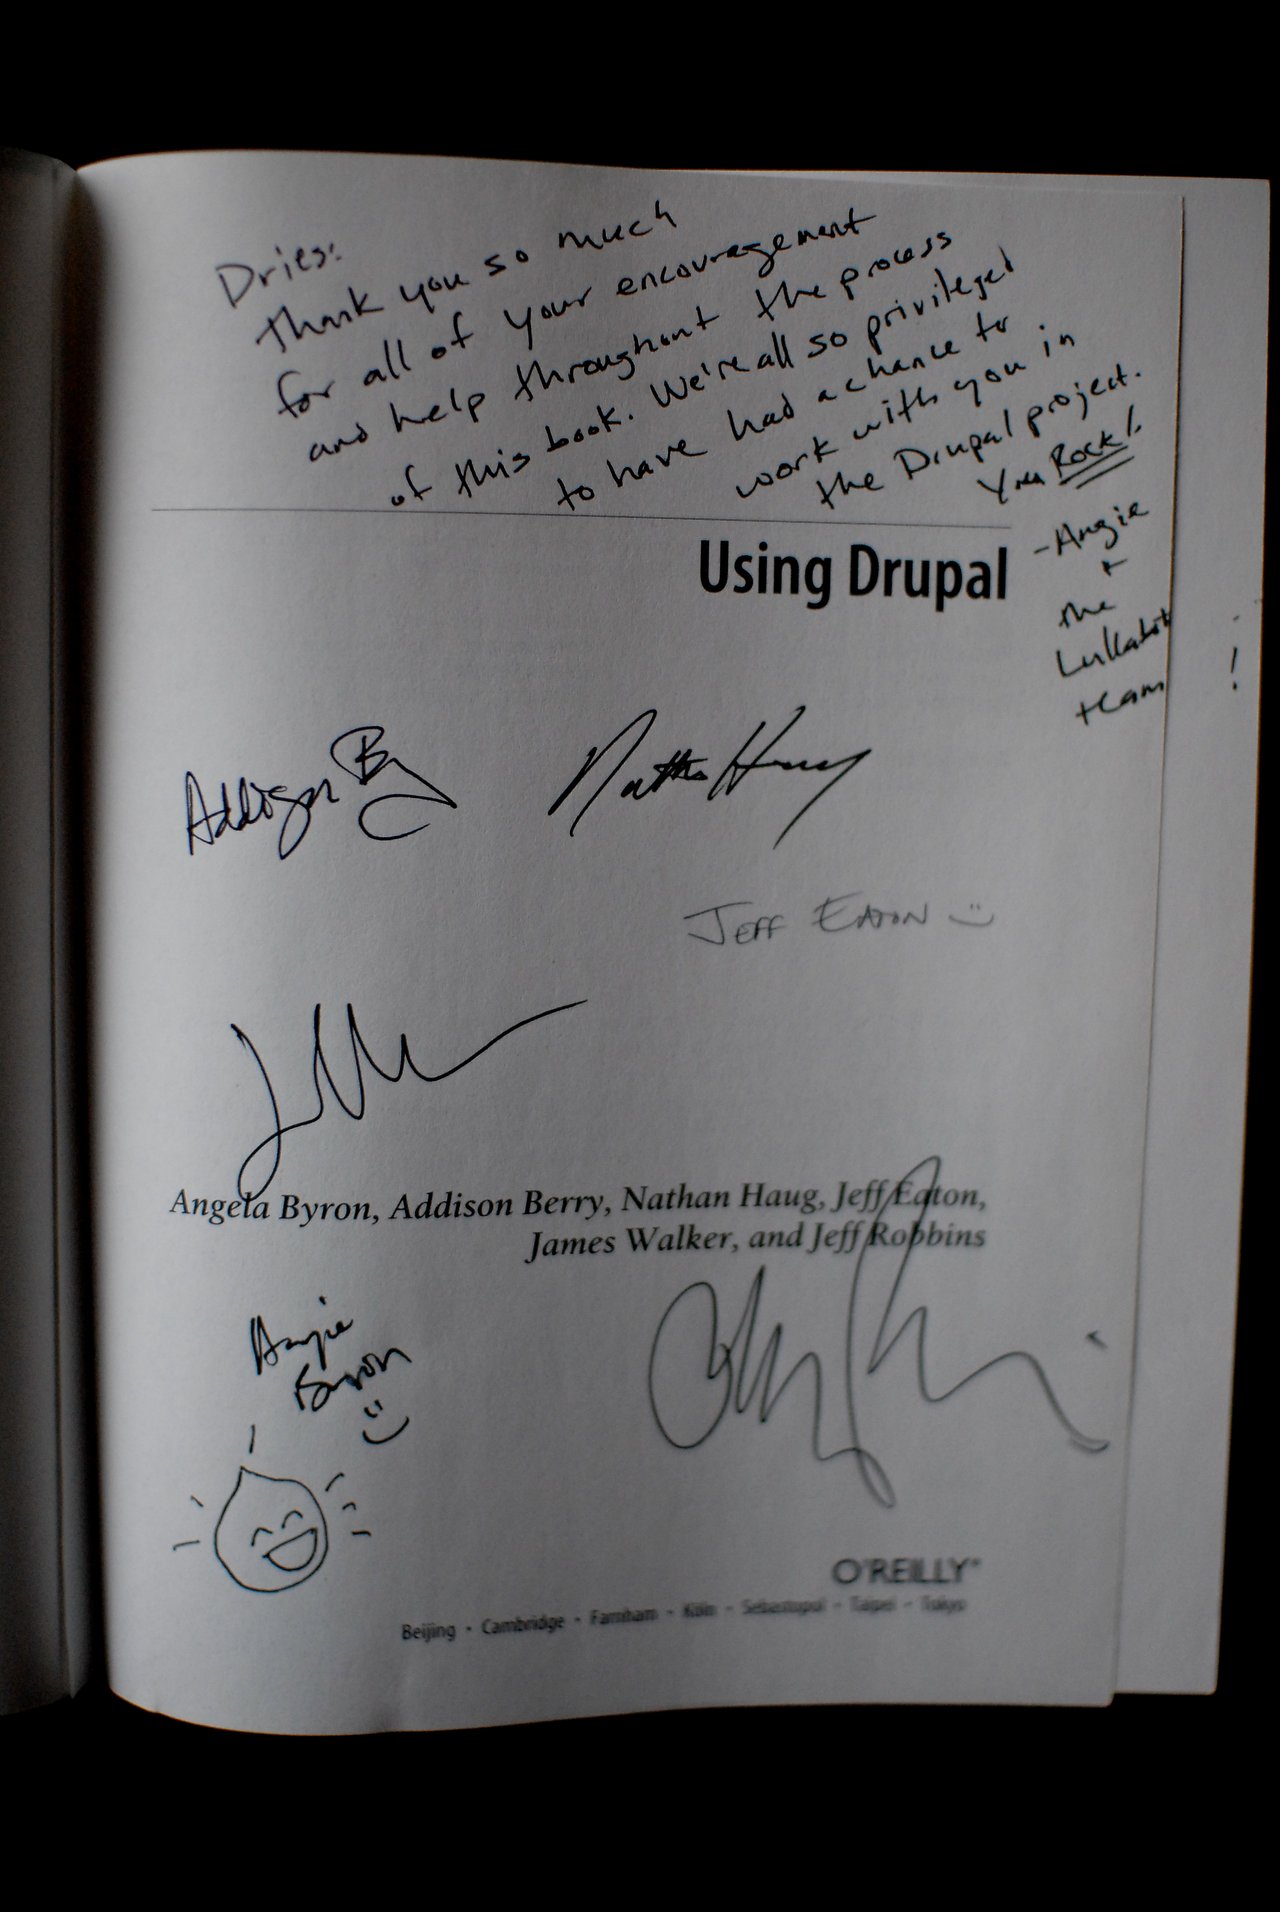 Dries:
Thank you so much
for all of your encouragement
and help throughout the process
of this book. We're all so privileged
to have had a chance to
work with you in
the Drupal project.
You Rock!
-Angie
+
the
Lullabot
team !
Using Drupal
Addison B
Nathan Haug
JEFF EATON :)
Angela Byron, Addison Berry, Nathan Haug, Jeff Eaton,
James Walker, and Jeff Robbins
Angie
Byron
:)
O'REILLY®
Beijing • Cambridge • Farnham • Köln • Sebastopol • Taipei • Tokyo